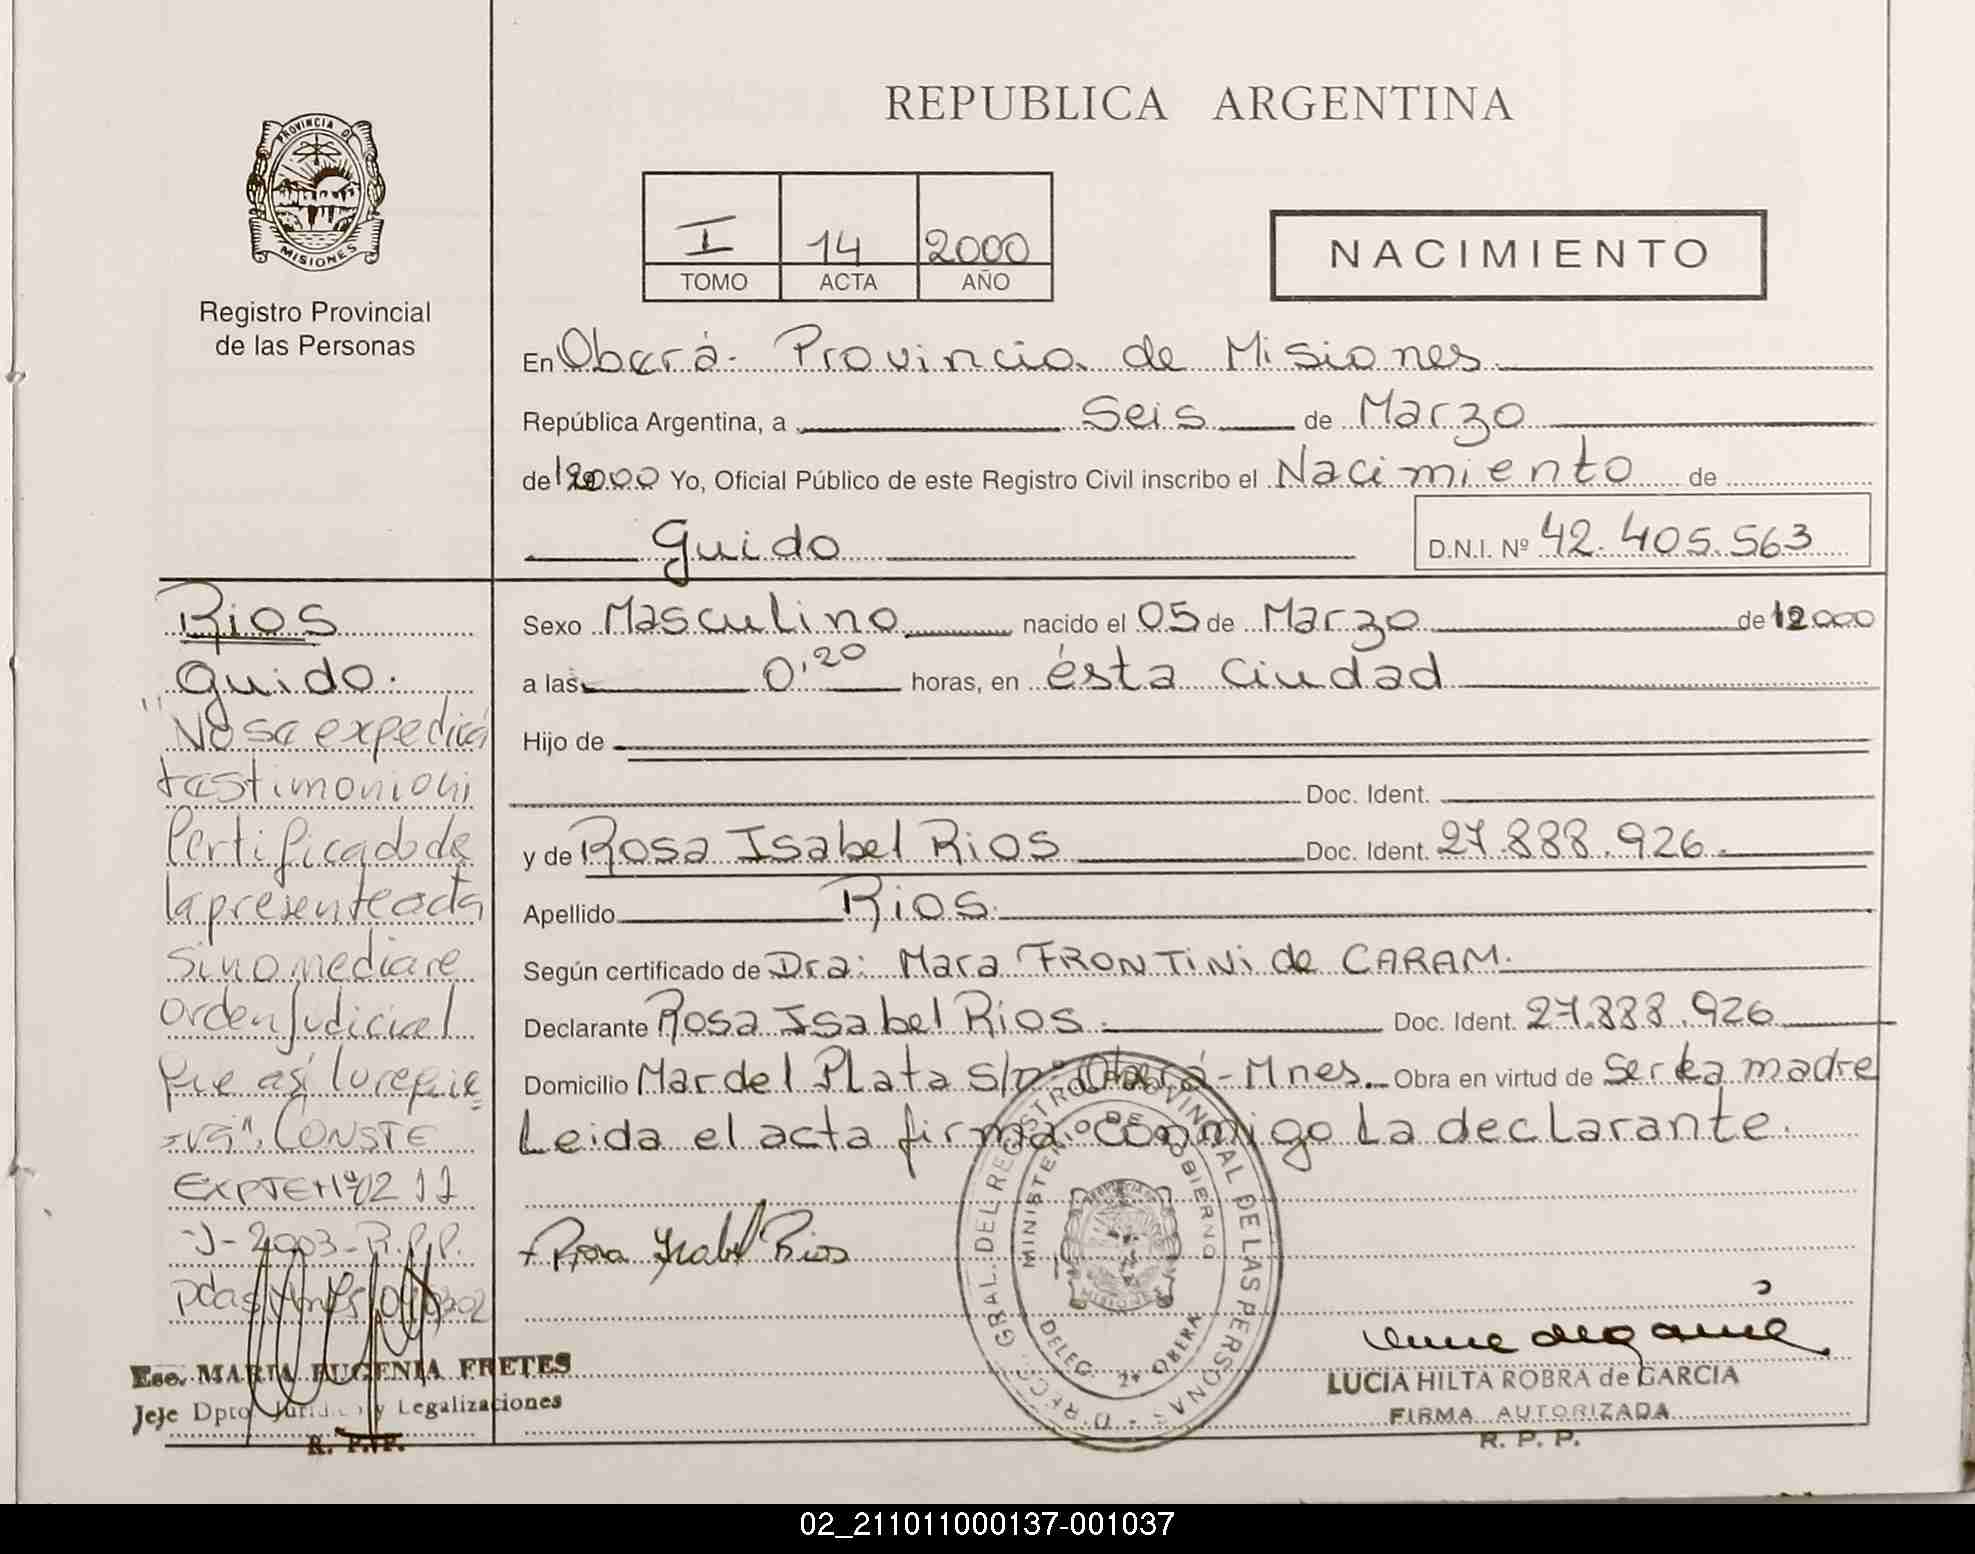 REPUBLICA ARGENTINA
PROVINCIA DE
MISIONES
Registro Provincial
de las Personas
I 14 2000
TOMO ACTA AÑO
NACIMIENTO
En Oberá - Provincia de Misiones
República Argentina, a Seis de Marzo
de 2000 Yo, Oficial Público de este Registro Civil inscribo el Nacimiento de
Guido
D.N.I. Nº 42.405.563
Rios
Guido.
"No se expedirá
testimonio ni
Certificado de
la presente acta
sino mediare
orden Judicial
que así lo requie
=ra". CONSTE
EXPTE Nº
-J-2003-R.P.P.
Pdas Mnes
Esc. MARIA EUGENIA FRETES
Jefe Dpto. Jurídico y Legalizaciones
R. P. P.
Sexo Masculino nacido el 05 de Marzo de 2000
a las 0,20 horas, en ésta Ciudad
Hijo de
Doc. Ident.
y de Rosa Isabel Rios Doc. Ident. 27.888.926.
Apellido Rios.
Según certificado de Dra: Mara FRONTINI de CARAM.
Declarante Rosa Isabel Rios. Doc. Ident. 27.888.926
Domicilio Mar del Plata S/nº Oberá - Mnes. Obra en virtud de Ser la madre
Leida el acta firma conmigo La declarante.
Rosa Isabel Rios
GRAL. DEL REGISTRO PROVINCIAL DE LAS PERSONAS
MINISTERIO DE GOBIERNO
MISIONES
DELEG. 2ª OBERA
LUCIA HILTA ROBRA de GARCIA
FIRMA AUTORIZADA
R. P. P.
02_211011000137-001037